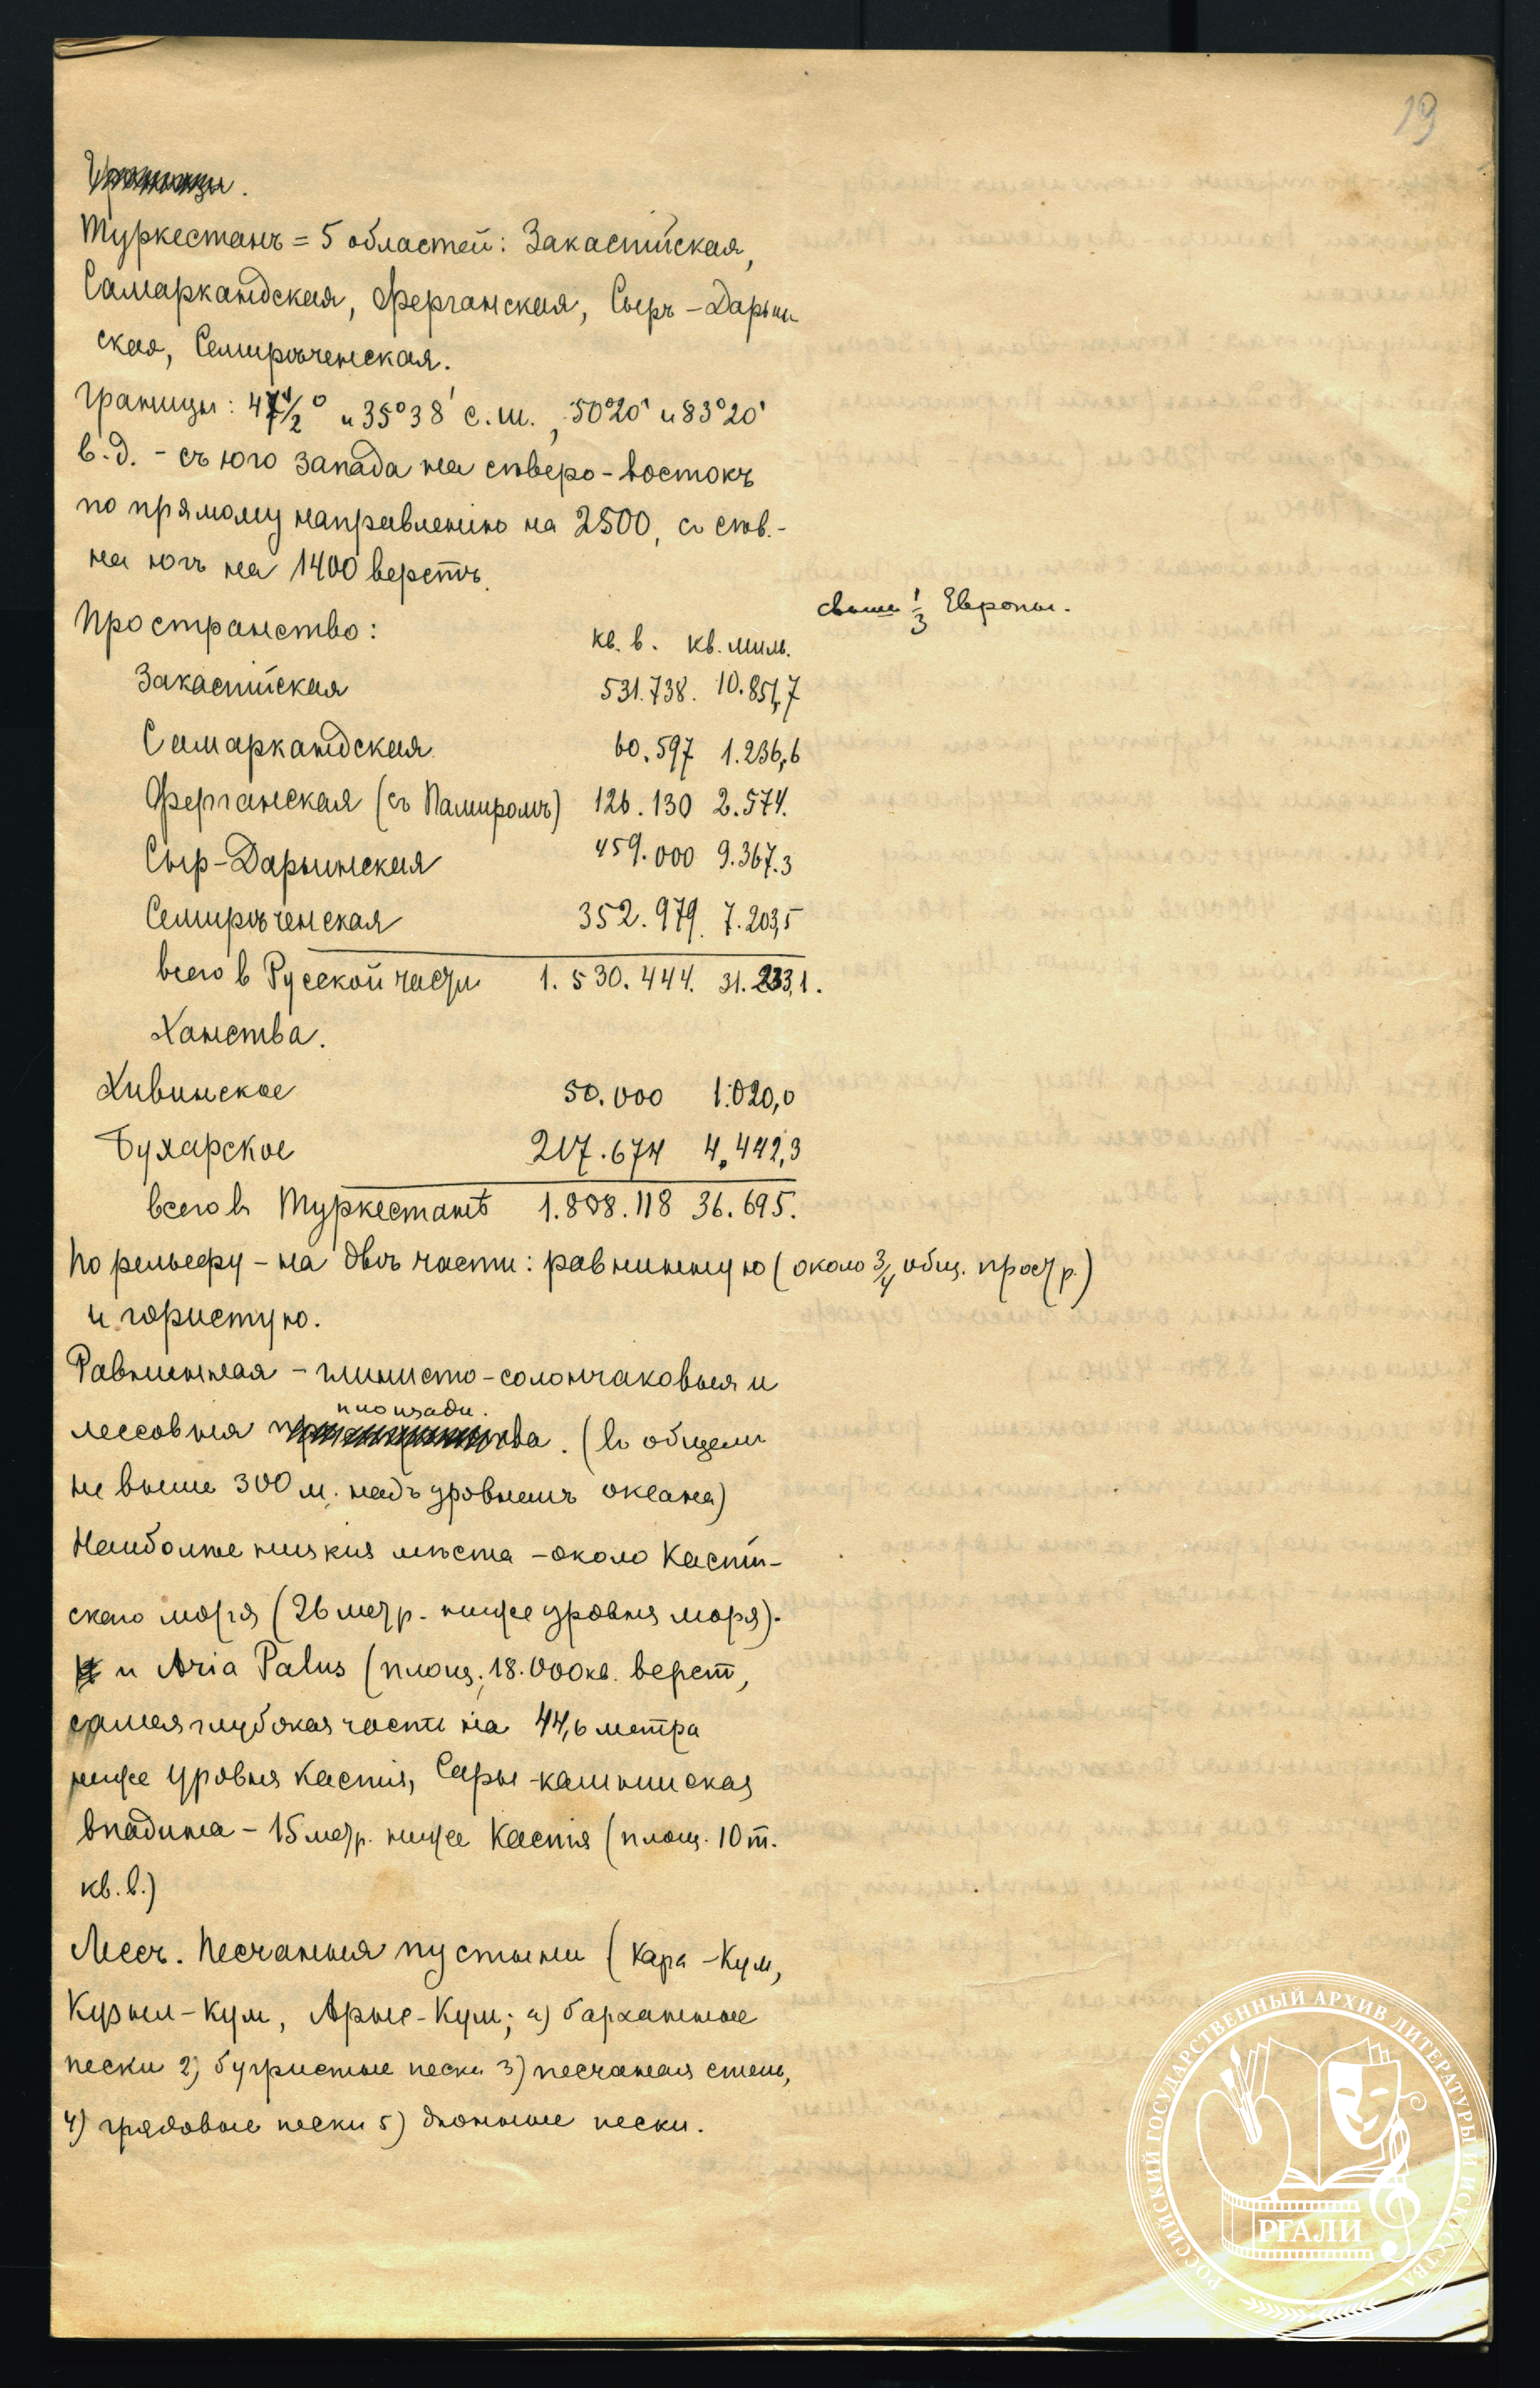 19
Границы.
Туркестанъ = 5 областей: Закаспійская,
Самаркандская, Ферганская, Сыръ-Дарьин
ская, Семирѣченская.
Границы: 47 1/2° и 35°38' с.ш., 50°20' и 83°20'
в.д. - съ юго запада на сѣверо-востокъ
по прямому направленію на 2500, с сѣв.-
на югъ на 1400 верстъ.
свыше 1/3 Европы.
Пространство:
кв. в. кв. миль.
Закаспійская 531.738. 10.851,7
Самаркандская 60.597 1.236,6
Ферганская (съ Памиромъ) 126.130 2.574.
Сыр-Дарьинская 459.000 9.367.3
Семирѣченская 352.979. 7.203,5
всего в Русской части 1.530.444. 31.233,1.
Ханства.
Хивинское 50.000 1.020,0
Бухарское 217.674 4.442,3
всего въ Туркестанѣ 1.808.118 36.695.
По рельефу - на двѣ части: равнинную (около 3/4 общ. простр.)
и гористую.
Равнинная - глинисто-солончаковыя и
площади.
лессовыя пространства. (въ общем
не выше 300 м. надъ уровнемъ океана)
Наиболѣе низкия мѣста - около Каспій-
скаго моря (26 метр. ниже уровня моря).
и Aria Palus (площ. 18.000 кв. верст,
самая глубокая часть на 44,6 метра
ниже уровня Каспія, Сары-камышская
впадина - 15 метр. ниже Каспія (площ. 10 т.
кв. в.)
Лёссъ. Песчаныя пустыни (Кара-Кум,
Кизыл-Кум, Арыс-Кум; а) барханные
пески 2) бугристые пески 3) песчаная степь,
4) грядовые пески 5) дюнные пески.
РОССИЙСКИЙ ГОСУДАРСТВЕННЫЙ АРХИВ ЛИТЕРАТУРЫ И ИСКУССТВА
РГАЛИ